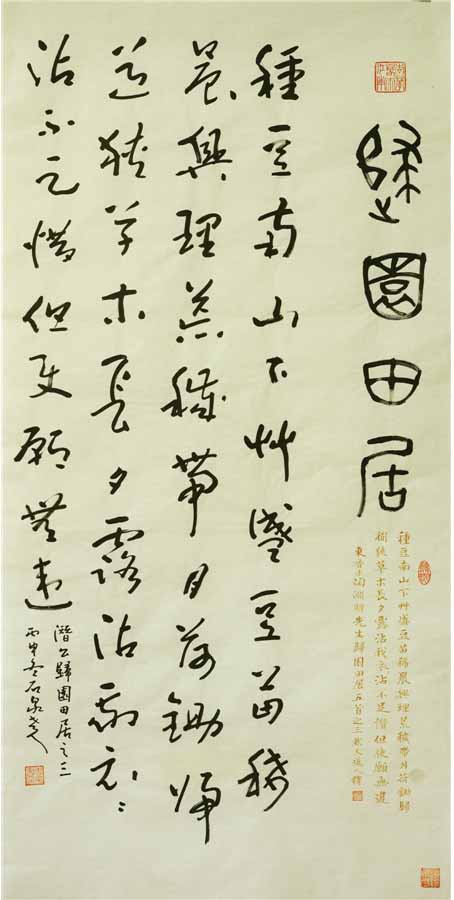 歸園田居
種豆南山下艸盛豆苗稀晨興理荒穢帶月荷鋤歸
狹草木長夕露沾我衣沾不足惜但使願無違
東晉陶淵明先生歸園田居五首之三
種豆南山下艸盛豆苗稀
晨興理荒穢帶月荷鋤歸
道狹草木長夕露沾我衣〻
沾不足惜但使願無違
潛公歸園田居之三
丙申冬石泉